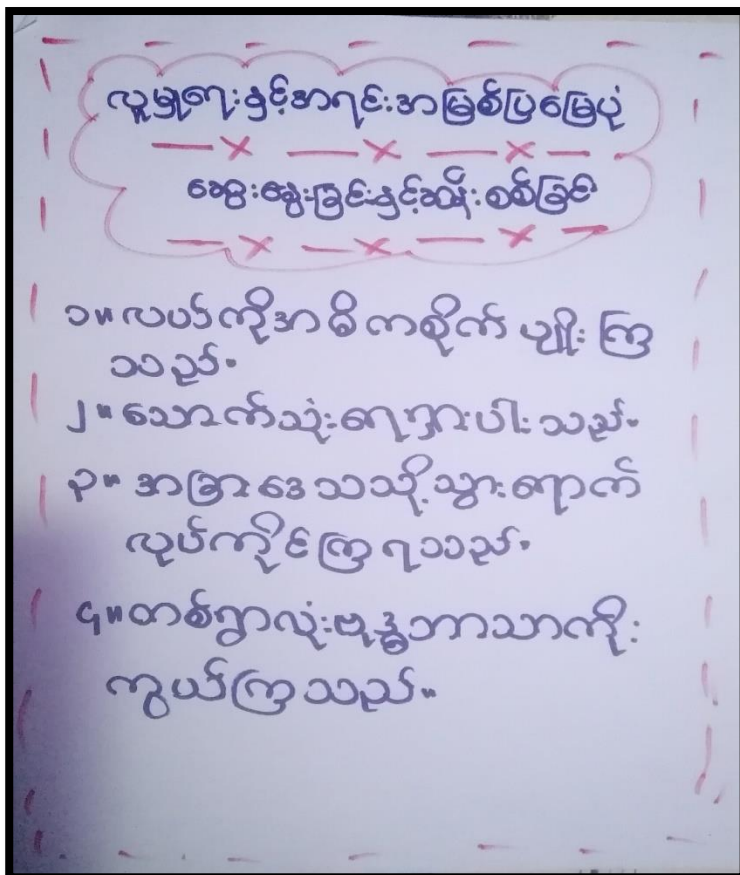 လူမှုရေးနှင့်အရင်းအမြစ်ပြမြေပုံ
ဆွေးနွေးခြင်းနှင့်ဆန်းစစ်ခြင်
၁။ လယ်ကိုအဓိကစိုက်ပျိုးကြ
သည်။
၂။ သောက်သုံးရေရှားပါးသည်။
၃။ အခြားဒေသသို့သွားရောက်
လုပ်ကိုင်ကြရသည်။
၄။ တစ်ရွာလုံးဗုဒ္ဓဘာသာကိုး
ကွယ်ကြသည်။